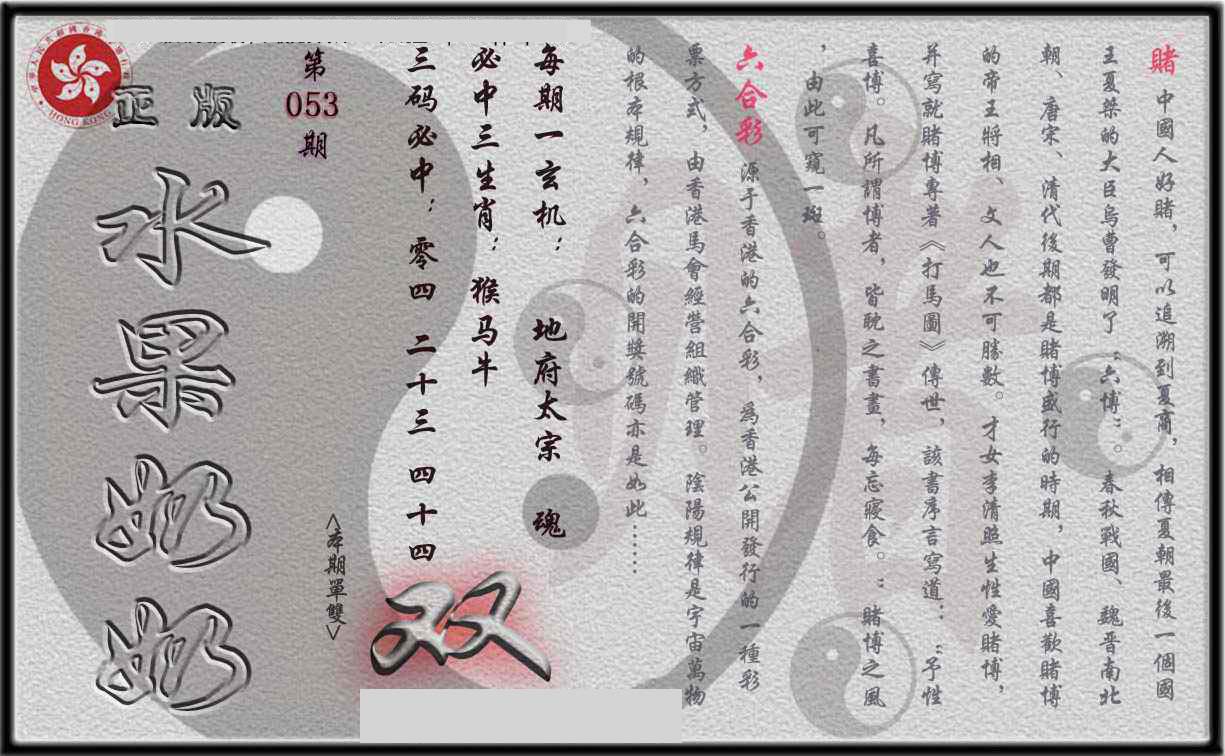 賭 中國人好賭，可以追溯到夏商，相傳夏朝最後一個國
王夏桀的大臣烏曹發明了“六博”。春秋戰國、魏晉南北
朝、唐宋、清代後期都是賭博盛行的時期，中國喜歡賭博
的帝王將相、文人也不可勝數。才女李清照生性愛賭博，
并寫就賭博專著《打馬圖》傳世，該書序言寫道：“予性
喜博。凡所謂博者，皆耽之書畫，每忘寢食。”賭博之風
，由此可窺一斑。
六合彩 源于香港的六合彩，爲香港公開發行的一種彩
票方式，由香港馬會經營組織管理。陰陽規律是宇宙萬物
的根本規律，六合彩的開獎號碼亦是如此……
每期一玄机： 地府太宗 魂
必中三生肖：猴马牛
三码必中：零四 二十三 四十四
双
<本期單雙>
第053期
正版
水果奶奶
HONG KONG